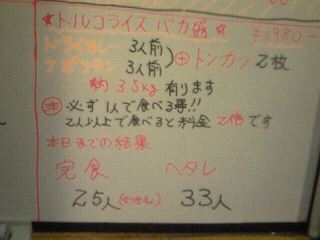 ★トルコライス バカ盛★ ¥1980-
ドライカレー 3人前
ナポリタン 3人前
⊕トンカツ 2枚
約 3.5kg 有ります
注 必ず 1人で食べる事!!
2人以上で食べると料金 2倍です
本日までの結果
完食 ヘタレ
25人(女性4人) 33人